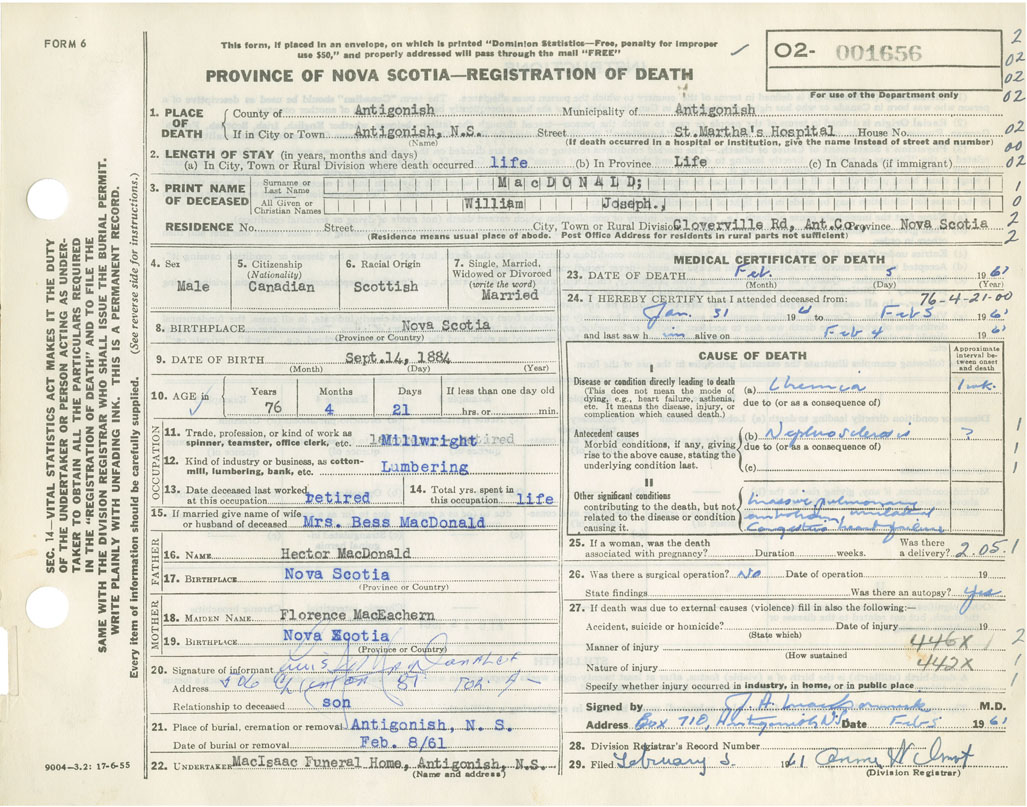 FORM 6
This form, if placed in an envelope, on which is printed "Dominion Statistics—Free, penalty for improper
use $50," and properly addressed will pass through the mail "FREE"
O2- 001656
For use of the Department only
PROVINCE OF NOVA SCOTIA—REGISTRATION OF DEATH
1. PLACE OF DEATH County of Antigonish Municipality of Antigonish
If in City or Town Antigonish, N.S. Street St.Martha's Hospital House No.
(Name) (If death occurred in a hospital or institution, give the name instead of street and number)
2. LENGTH OF STAY (in years, months and days)
(a) In City, Town or Rural Division where death occurred life (b) In Province Life (c) In Canada (if immigrant)
3. PRINT NAME OF DECEASED Surname or Last Name MacDONALD;
All Given or Christian Names William Joseph.,
RESIDENCE No. Street City, Town or Rural Division Cloverville Rd, Ant.Co. Province Nova Scotia
(Residence means usual place of abode. Post Office Address for residents in rural parts not sufficient)
4. Sex Male
5. Citizenship (Nationality) Canadian
6. Racial Origin Scottish
7. Single, Married, Widowed or Divorced (write the word) Married
8. BIRTHPLACE Nova Scotia
(Province or Country)
9. DATE OF BIRTH Sept.14, 1884
(Month) (Day) (Year)
10. AGE in Years 76 Months 4 Days 21 If less than one day old hrs. or min.
OCCUPATION
11. Trade, profession, or kind of work as spinner, teamster, office clerk, etc. Millwright
12. Kind of industry or business, as cotton-mill, lumbering, bank, etc. Lumbering
13. Date deceased last worked at this occupation retired 14. Total yrs. spent in this occupation life
15. If married give name of wife or husband of deceased Mrs. Bess MacDonald
FATHER
16. NAME Hector MacDonald
17. BIRTHPLACE Nova Scotia
(Province or Country)
MOTHER
18. MAIDEN NAME Florence MacEachern
19. BIRTHPLACE Nova Scotia
(Province or Country)
20. Signature of informant
Address
Relationship to deceased son
21. Place of burial, cremation or removal Antigonish, N. S.
Date of burial or removal Feb. 8/61
22. UNDERTAKER MacIsaac Funeral Home, Antigonish, N.S.
(Name and address)
MEDICAL CERTIFICATE OF DEATH
23. DATE OF DEATH Feb. 5 1961
(Month) (Day) (Year)
24. I HEREBY CERTIFY that I attended deceased from: 76-4-21-00
Jan. 31 1961 to Feb 5 1961
and last saw him alive on Feb 4 1961
CAUSE OF DEATH
Approximate interval between onset and death
I
Disease or condition directly leading to death
(This does not mean the mode of dying, e.g., heart failure, asthenia, etc. It means the disease, injury, or complication which caused death.)
(a) Uremia
due to (or as a consequence of)
Antecedent causes
Morbid conditions, if any, giving rise to the above cause, stating the underlying condition last.
(b) Nephrosclerosis ?
due to (or as a consequence of)
(c)
II
Other significant conditions
contributing to the death, but not related to the disease or condition causing it.
Massive pulmonary
Congestive heart failure
25. If a woman, was the death associated with pregnancy? Duration weeks. Was there a delivery? 2.05.1
26. Was there a surgical operation? No Date of operation 19
State findings Was there an autopsy? Yes
27. If death was due to external causes (violence) fill in also the following:—
Accident, suicide or homicide? Date of injury 19
(State which)
Manner of injury 446X
(How sustained
Nature of injury 442X
Specify whether injury occurred in industry, in home, or in public place
Signed by M.D.
Address Box 710, Antigonish N.S. Date Feb 5 1961
28. Division Registrar's Record Number
29. Filed February 5 1961
(Division Registrar)
SEC. 14—VITAL STATISTICS ACT MAKES IT THE DUTY
OF THE UNDERTAKER OR PERSON ACTING AS UNDER-
TAKER TO OBTAIN ALL THE PARTICULARS REQUIRED
IN THE "REGISTRATION OF DEATH" AND TO FILE THE
SAME WITH THE DIVISION REGISTRAR WHO SHALL ISSUE THE BURIAL PERMIT.
WRITE PLAINLY WITH UNFADING INK. THIS IS A PERMANENT RECORD.
Every item of information should be carefully supplied. (See reverse side for instructions.)
9004-3.2: 17-6-55
2
02
02
02
02
00
02
1
0
2
2
1
1
1
1
2
1
1